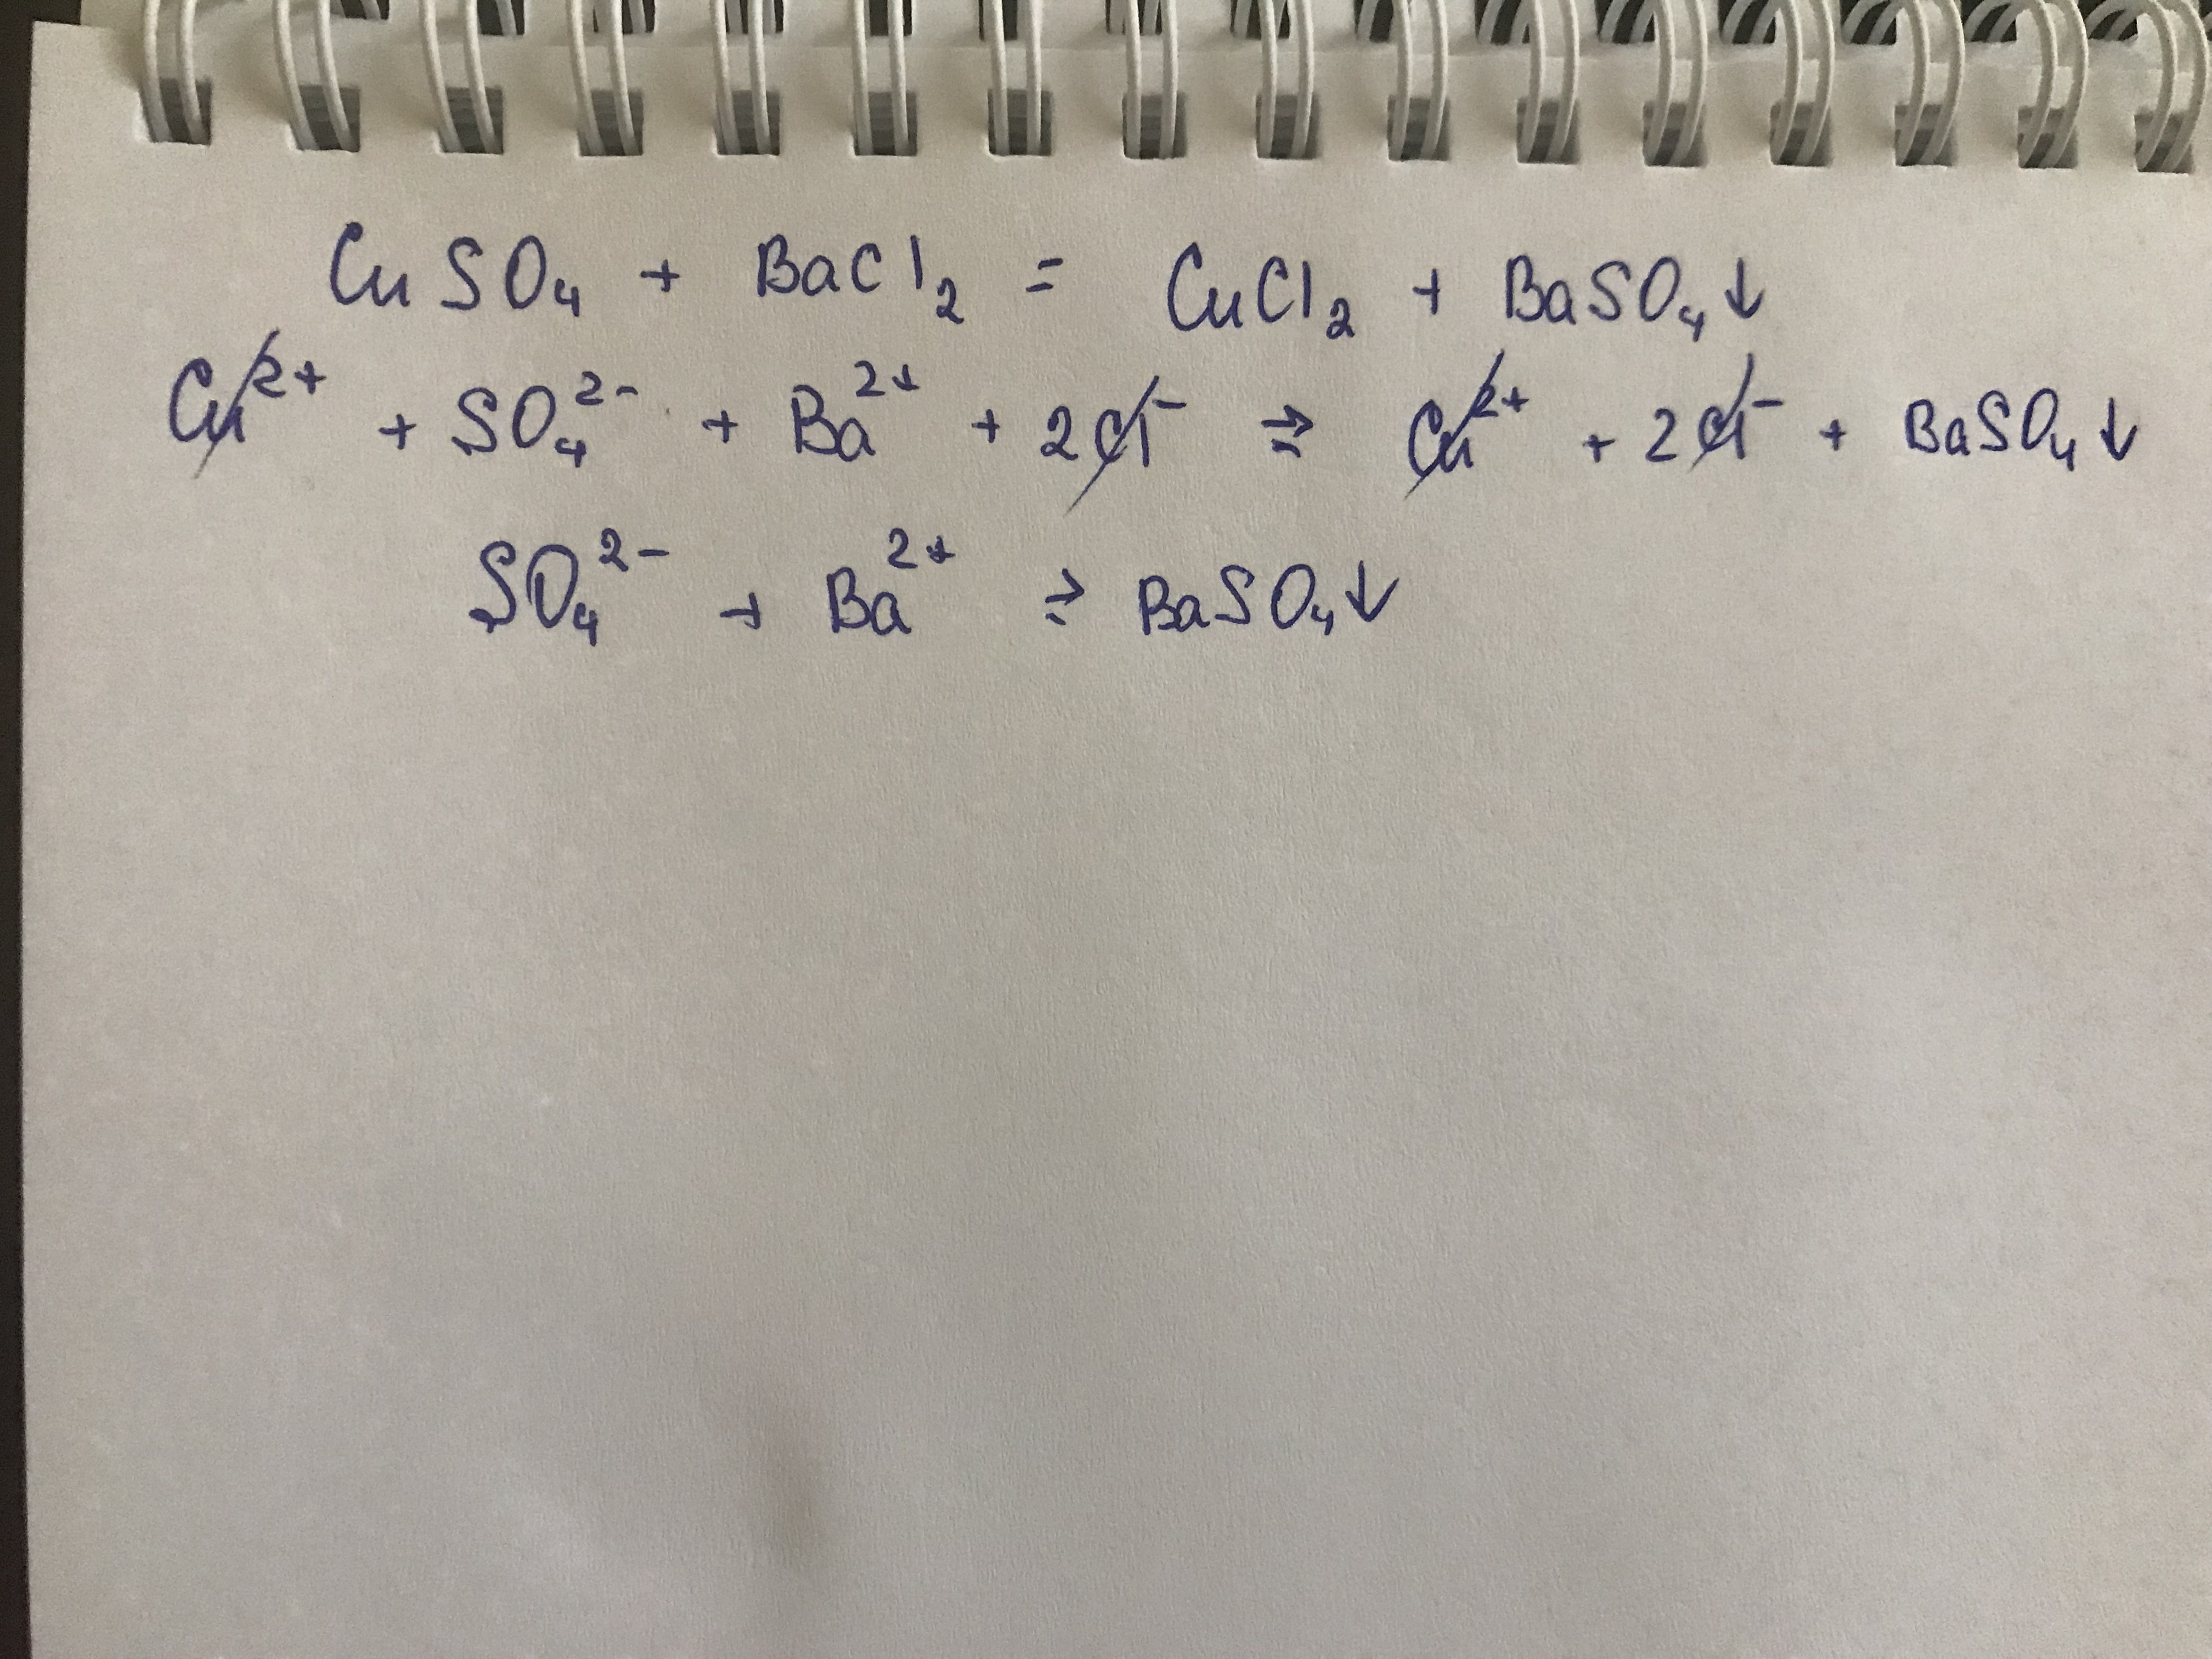 CuSO₄ + BaCl₂ = CuCl₂ + BaSO₄↓
Cu²⁺ + SO₄²⁻ + Ba²⁺ + 2Cl⁻ ⇄ Cu²⁺ + 2Cl⁻ + BaSO₄↓
SO₄²⁻ + Ba²⁺ ⇄ BaSO₄↓